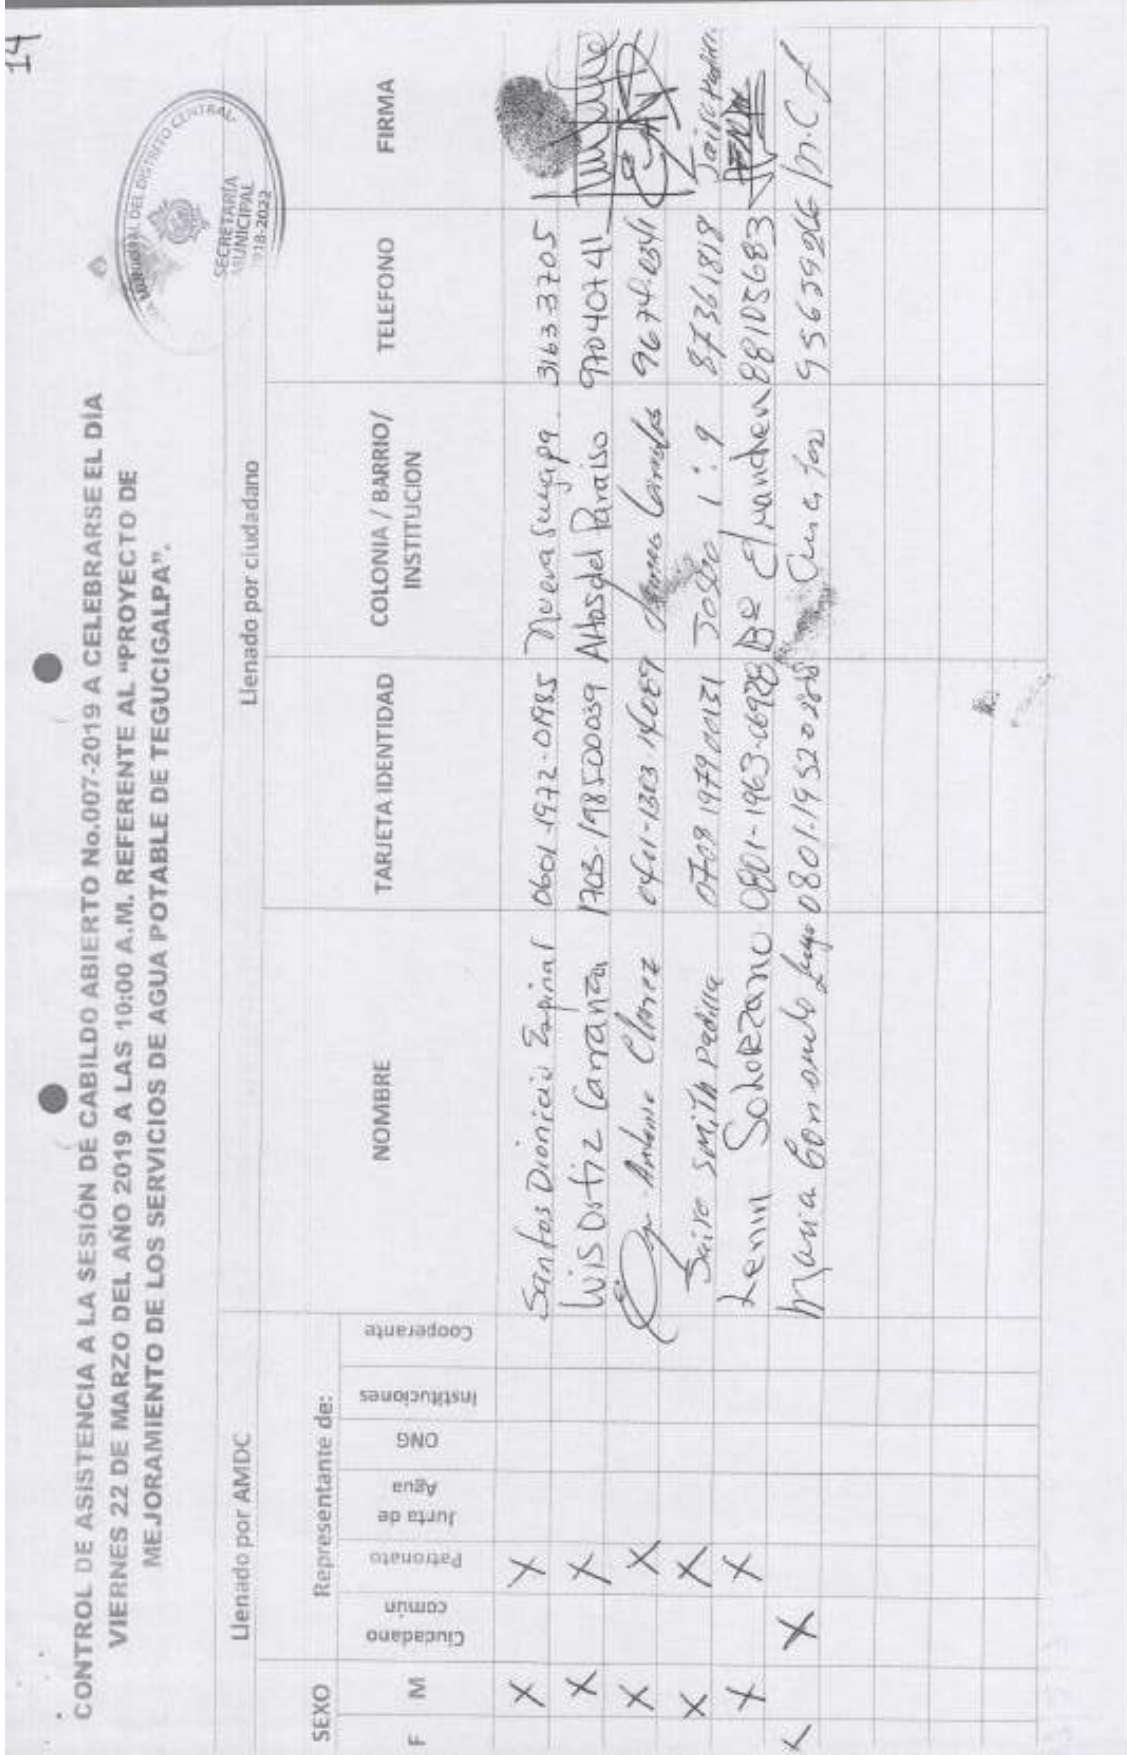 14
CONTROL DE ASISTENCIA A LA SESIÓN DE CABILDO ABIERTO No.007-2019 A CELEBRARSE EL DÍA
VIERNES 22 DE MARZO DEL AÑO 2019 A LAS 10:00 A.M. REFERENTE AL "PROYECTO DE
MEJORAMIENTO DE LOS SERVICIOS DE AGUA POTABLE DE TEGUCIGALPA".
MUNICIPAL DEL DISTRITO CENTRAL
SECRETARÍA
MUNICIPAL
2018-2022
Llenado por AMDC Llenado por ciudadano
SEXO Representante de:
F M Ciudadano común Patronato Junta de Agua ONG Instituciones Cooperante NOMBRE TARJETA IDENTIDAD COLONIA / BARRIO/ INSTITUCION TELEFONO FIRMA
X X Santos Dionicio Espinal 0601-1972-01985 Nueva Suyapa. 31633705
X X Luis Ortiz Carranza 1703-198500039 Altos del Paraiso 97040741
X X Antonio 9674-0341
X X Jairo Smith Padilla 0708 1979 00131 8736 1818 Jairo Padilla
X X Lenin Solorzano 0801-1963-06928 Bo El manchen 88105683
X X Maria 0801-1952 95659266 M.C.f